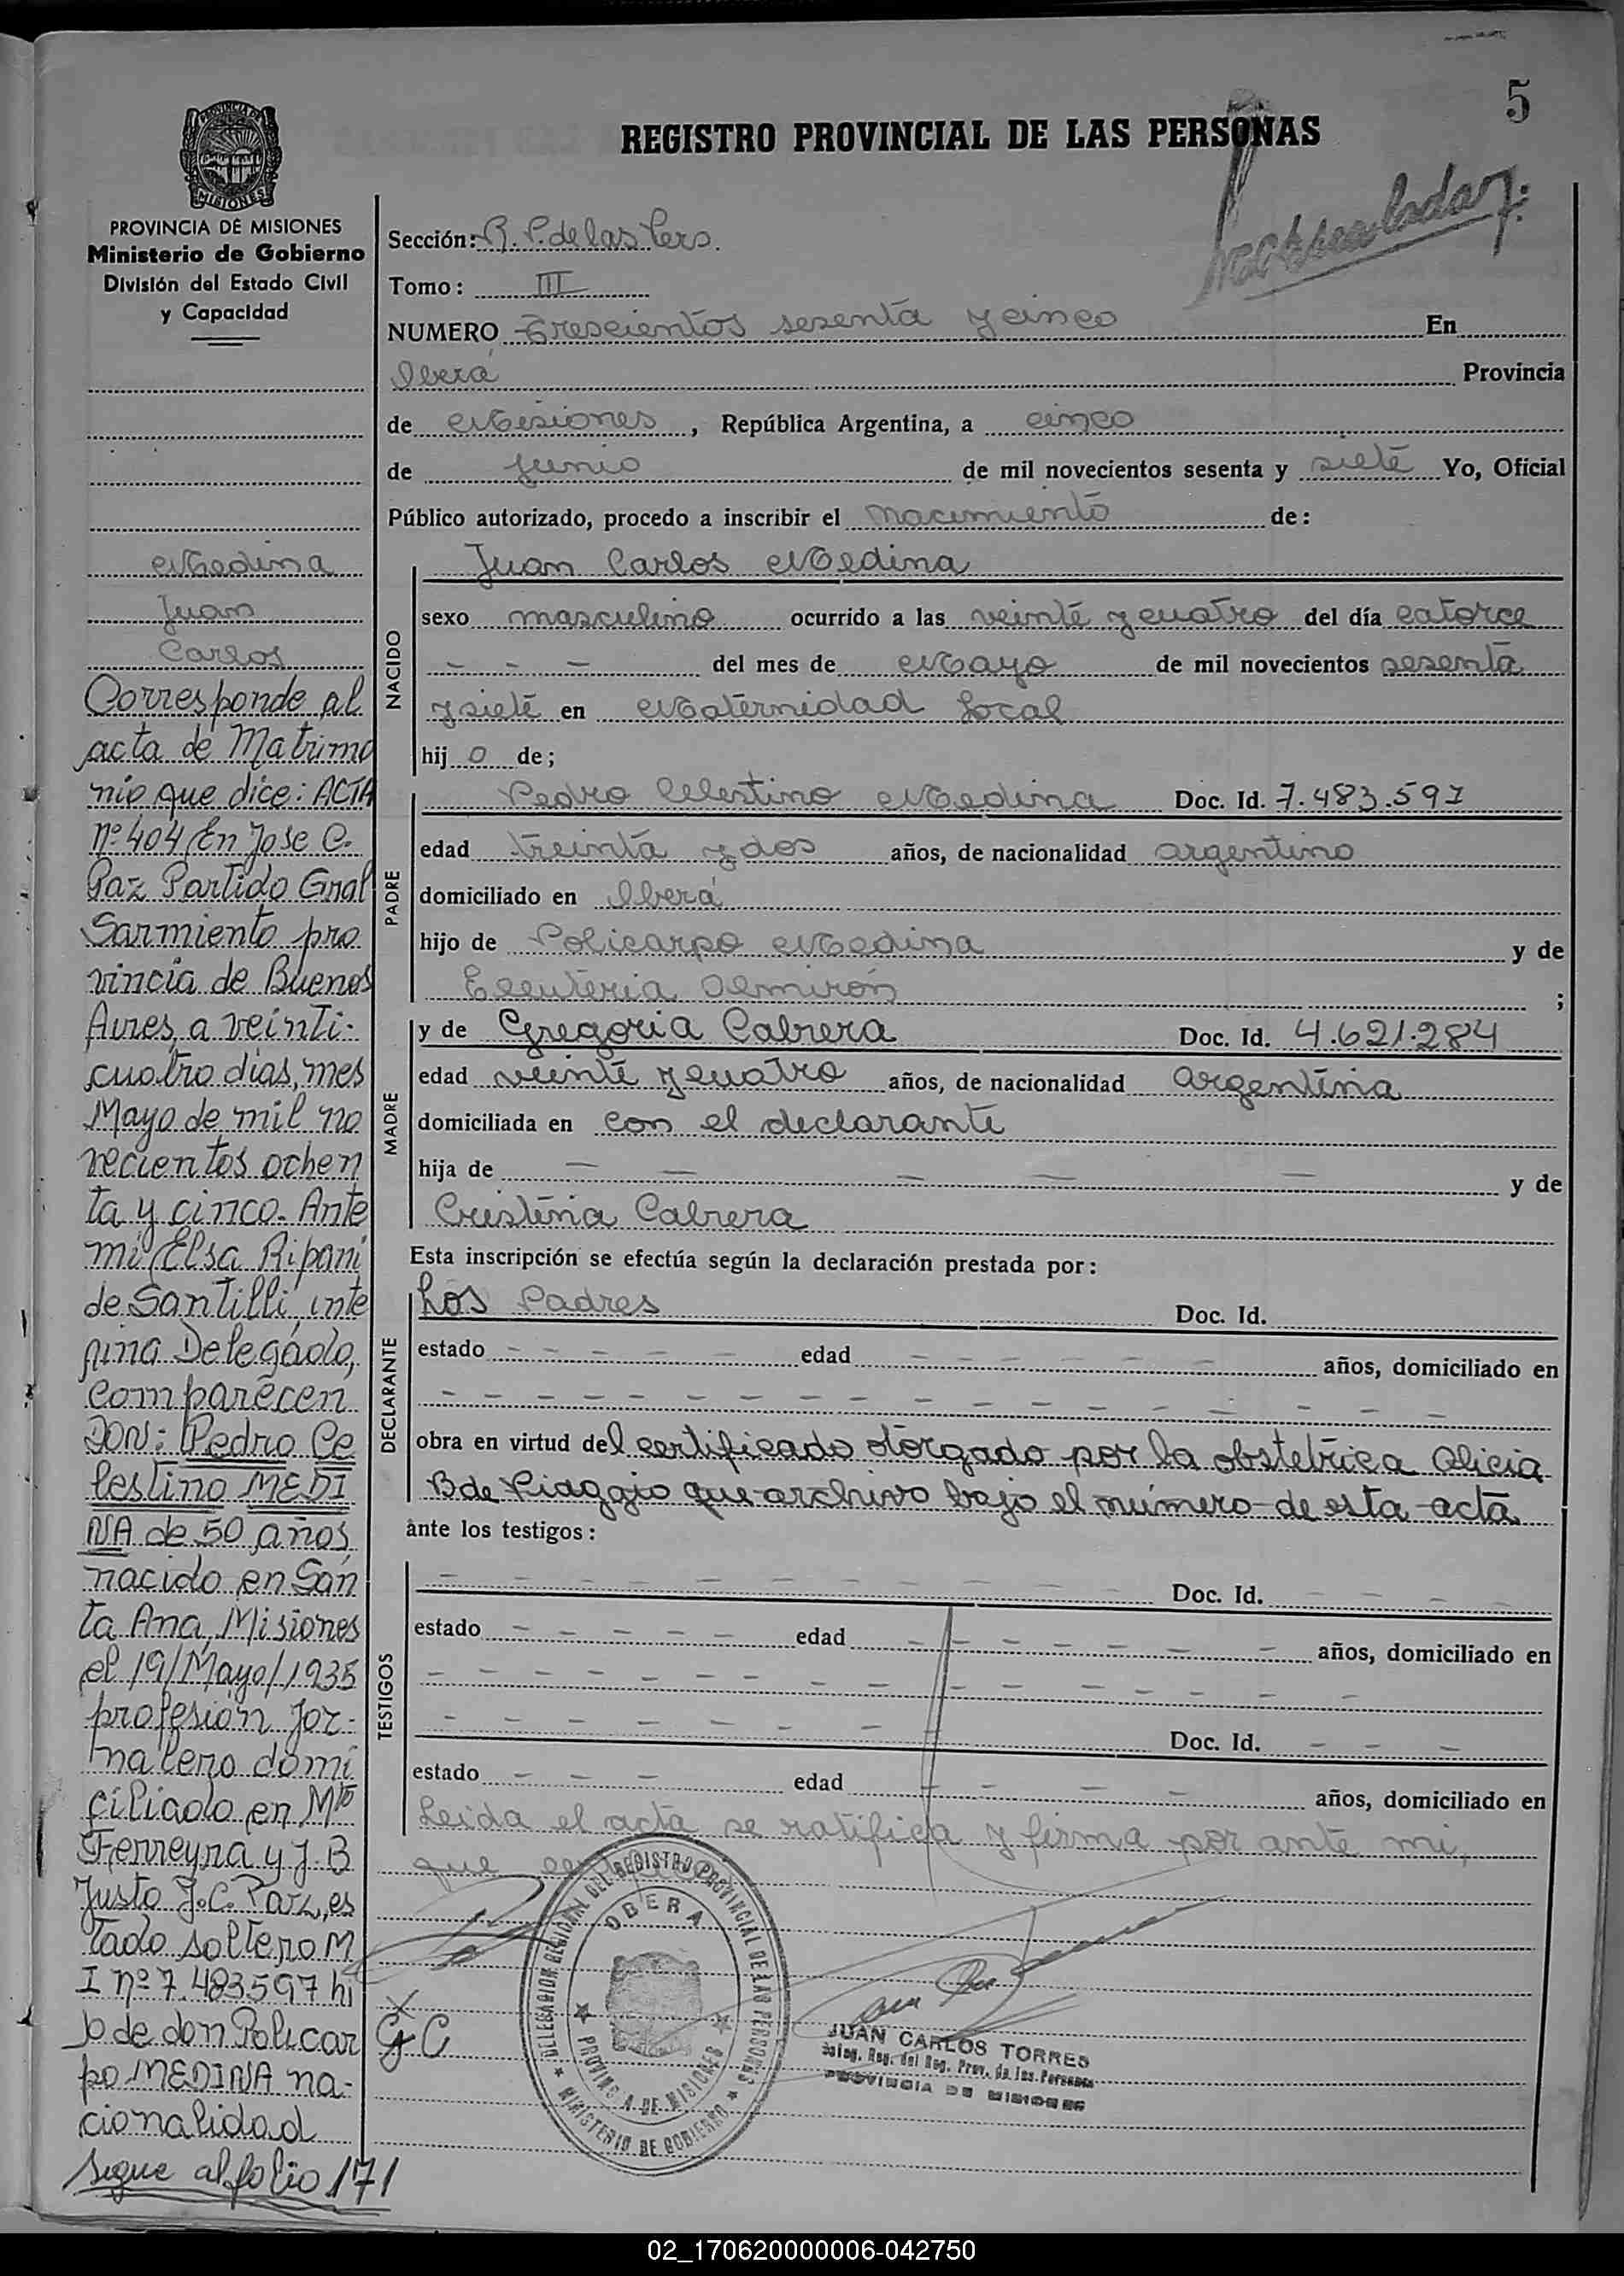 5
REGISTRO PROVINCIAL DE LAS PERSONAS
PROVINCIA DE MISIONES
MISIONES
PROVINCIA DE MISIONES
Ministerio de Gobierno
División del Estado Civil
y Capacidad
Medina
Juan
Carlos
Corresponde al
acta de Matrimo
nio que dice: ACTA
Nº 404 En Jose C.
Paz Partido Gral
Sarmiento pro
vincia de Buenos
Aires, a veinti-
cuatro dias, mes
Mayo de mil no
vecientos ochen
ta y cinco. Ante
mi Elsa Ripani
de Santilli, inte
rina Delegado,
comparecen
DON: Pedro Ce
lestino MEDI
NA de 50 años,
nacido en San
ta Ana, Misiones
el 19/Mayo/1935
profesión Jor-
nalero domi
ciliado en Mto
Ferreyra y J. B
Justo J.C. Paz, es
tado soltero M
I nº 7.483597 hi
jo de don Policar
po MEDINA na-
cionalidad
Sigue al folio 171
Sección: R. P. de las Pers.
Tomo: III
NUMERO Trescientos sesenta y cinco En
Oberá Provincia
de Misiones, República Argentina, a cinco
de Junio de mil novecientos sesenta y siete Yo, Oficial
Público autorizado, procedo a inscribir el nacimiento de:
NACIDO
Juan Carlos Medina
sexo masculino ocurrido a las veinte y cuatro del día catorce
- - - del mes de Mayo de mil novecientos sesenta
y siete en Maternidad Local
hij o de;
PADRE
Pedro Celestino Medina Doc. Id. 7.483.597
edad treinta y dos años, de nacionalidad argentino
domiciliado en Oberá
hijo de Policarpo Medina y de
Eleuteria Almirón ;
MADRE
y de Gregoria Cabrera Doc. Id. 4.621.284
edad veinte y cuatro años, de nacionalidad argentina
domiciliada en con el declarante
hija de - - - - - y de
Cristina Cabrera
Esta inscripción se efectúa según la declaración prestada por:
DECLARANTE
Los Padres Doc. Id.
estado - - - - edad - - - - - años, domiciliado en
- - - - - - - - - - - - - -
obra en virtud del certificado otorgado por la obstetrica Alicia
B de Piaggio que archivo bajo el número de esta acta
ante los testigos:
TESTIGOS
- - - - - - - - - - Doc. Id. - - - -
estado - - - - - edad - - - - - - años, domiciliado en
- - - - - - - - - - - - - -
- - - - - - - - Doc. Id. - - -
estado - - - edad - - - - años, domiciliado en
Leida el acta se ratifica y firma por ante mi,
que certifico
G C
DELEGACION REGIONAL DEL REGISTRO PROVINCIAL DE LAS PERSONAS
OBERA
PROVINCIA DE MISIONES
MINISTERIO DE GOBIERNO
JUAN CARLOS TORRES
Deleg. Reg. del Reg. Prov. de las Personas
PROVINCIA DE MISIONES
02_170620000006-042750